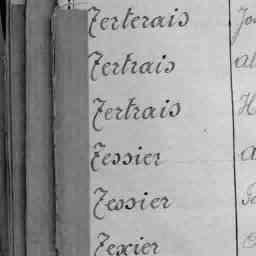 Terterais
Tertrais
Tertrais
Tessier
Tessier
Texier